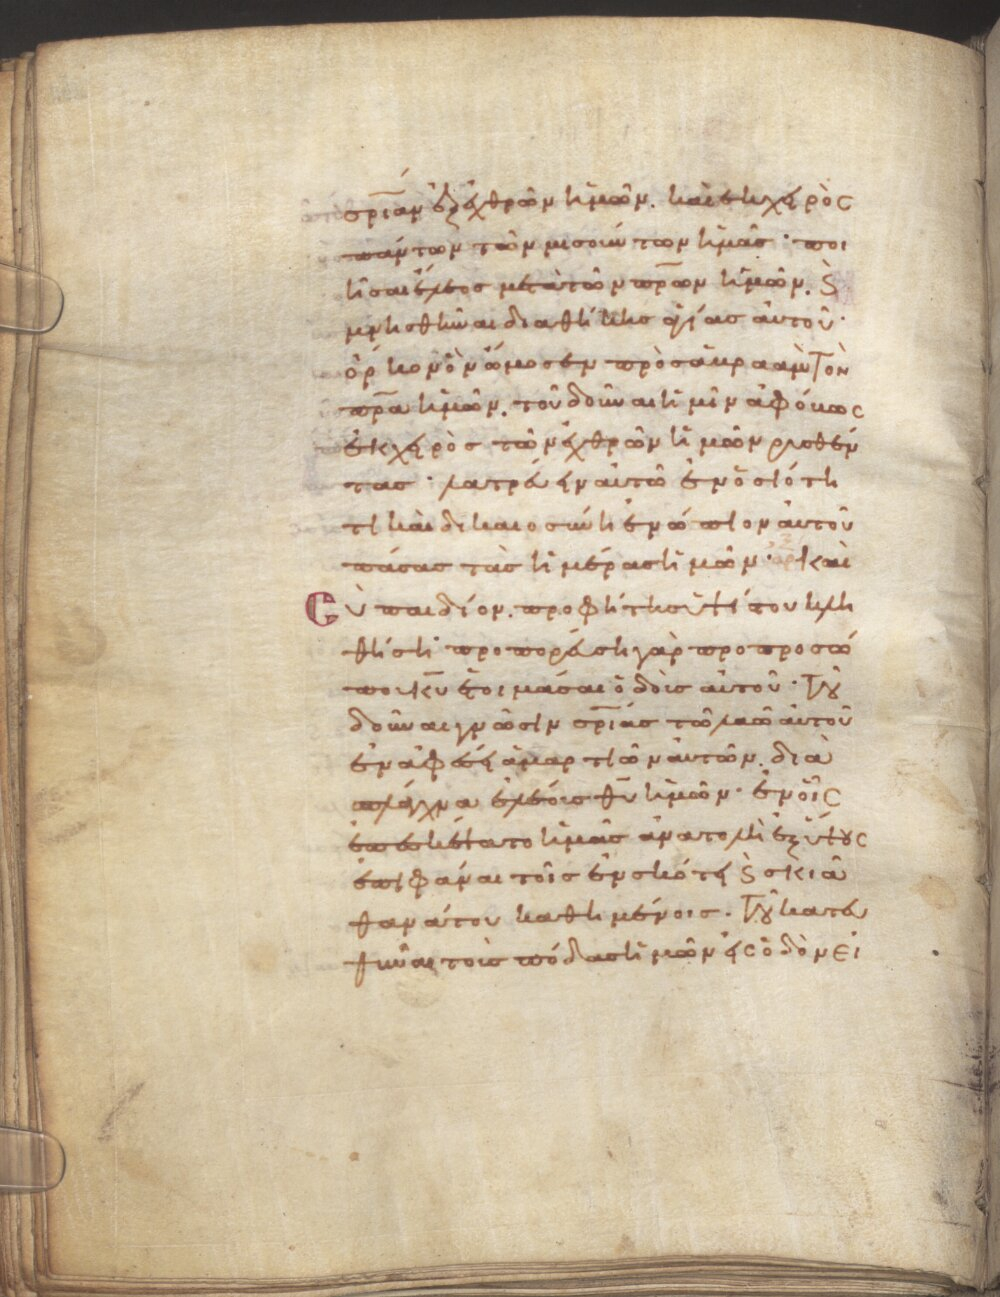 σρίαν ἐξ ἐχθρῶν ἡμῶν. καὶ ἐκ χειρὸς
πάντων τῶν μισούντων ἡμᾶς· ποι
ῆσαι ἔλεος μετὰ τῶν πρῶν ἡμῶν. ϗ
μνησθῆναι διαθήκης ἁγίας αὐτοῦ·
ὅρκον ὃν ὤμοσεν πρὸς ἀβρααμ τὸν
πρα ἡμῶν. τοῦ δοῦναι ἡμῖν ἀφόβως
ἐκ χειρὸς τῶν ἐχθρῶν ἡμῶν ρυσθέν
τας· λατρεύειν αὐτῶ ἐν ὁσιότη
τι καὶ δικαιοσύνη ἐνώπιον αὐτοῦ
πάσας τὰς ἡμέρας ἡμῶν· καὶ
Σὺ παιδίον. προφήτης ὑψίστου κλη
θήση· προπορεύση γὰρ προ προσώ
που κυ ἑτοιμάσαι ὁδοὺς αὐτοῦ· Τοῦ
δοῦναι γνῶσιν σρίας τῶ λαῶ αὐτοῦ
ἐν ἀφέσει ἁμαρτιῶν αὐτῶν. διὰ
σπλάγχνα ἐλέους θυ ἡμῶν· ἐν οἷς
ἐπεσκέψατο ἡμᾶς ἀνατολὴ ἐξ ὕψους
ἐπιφάναι τοῖς ἐν σκότει ϗ σκιᾶ
θανάτου καθημένοις. Τοῦ κατευ
θῦναι τοὺς πόδας ἡμῶν εἰς ὁδὸν εἰ